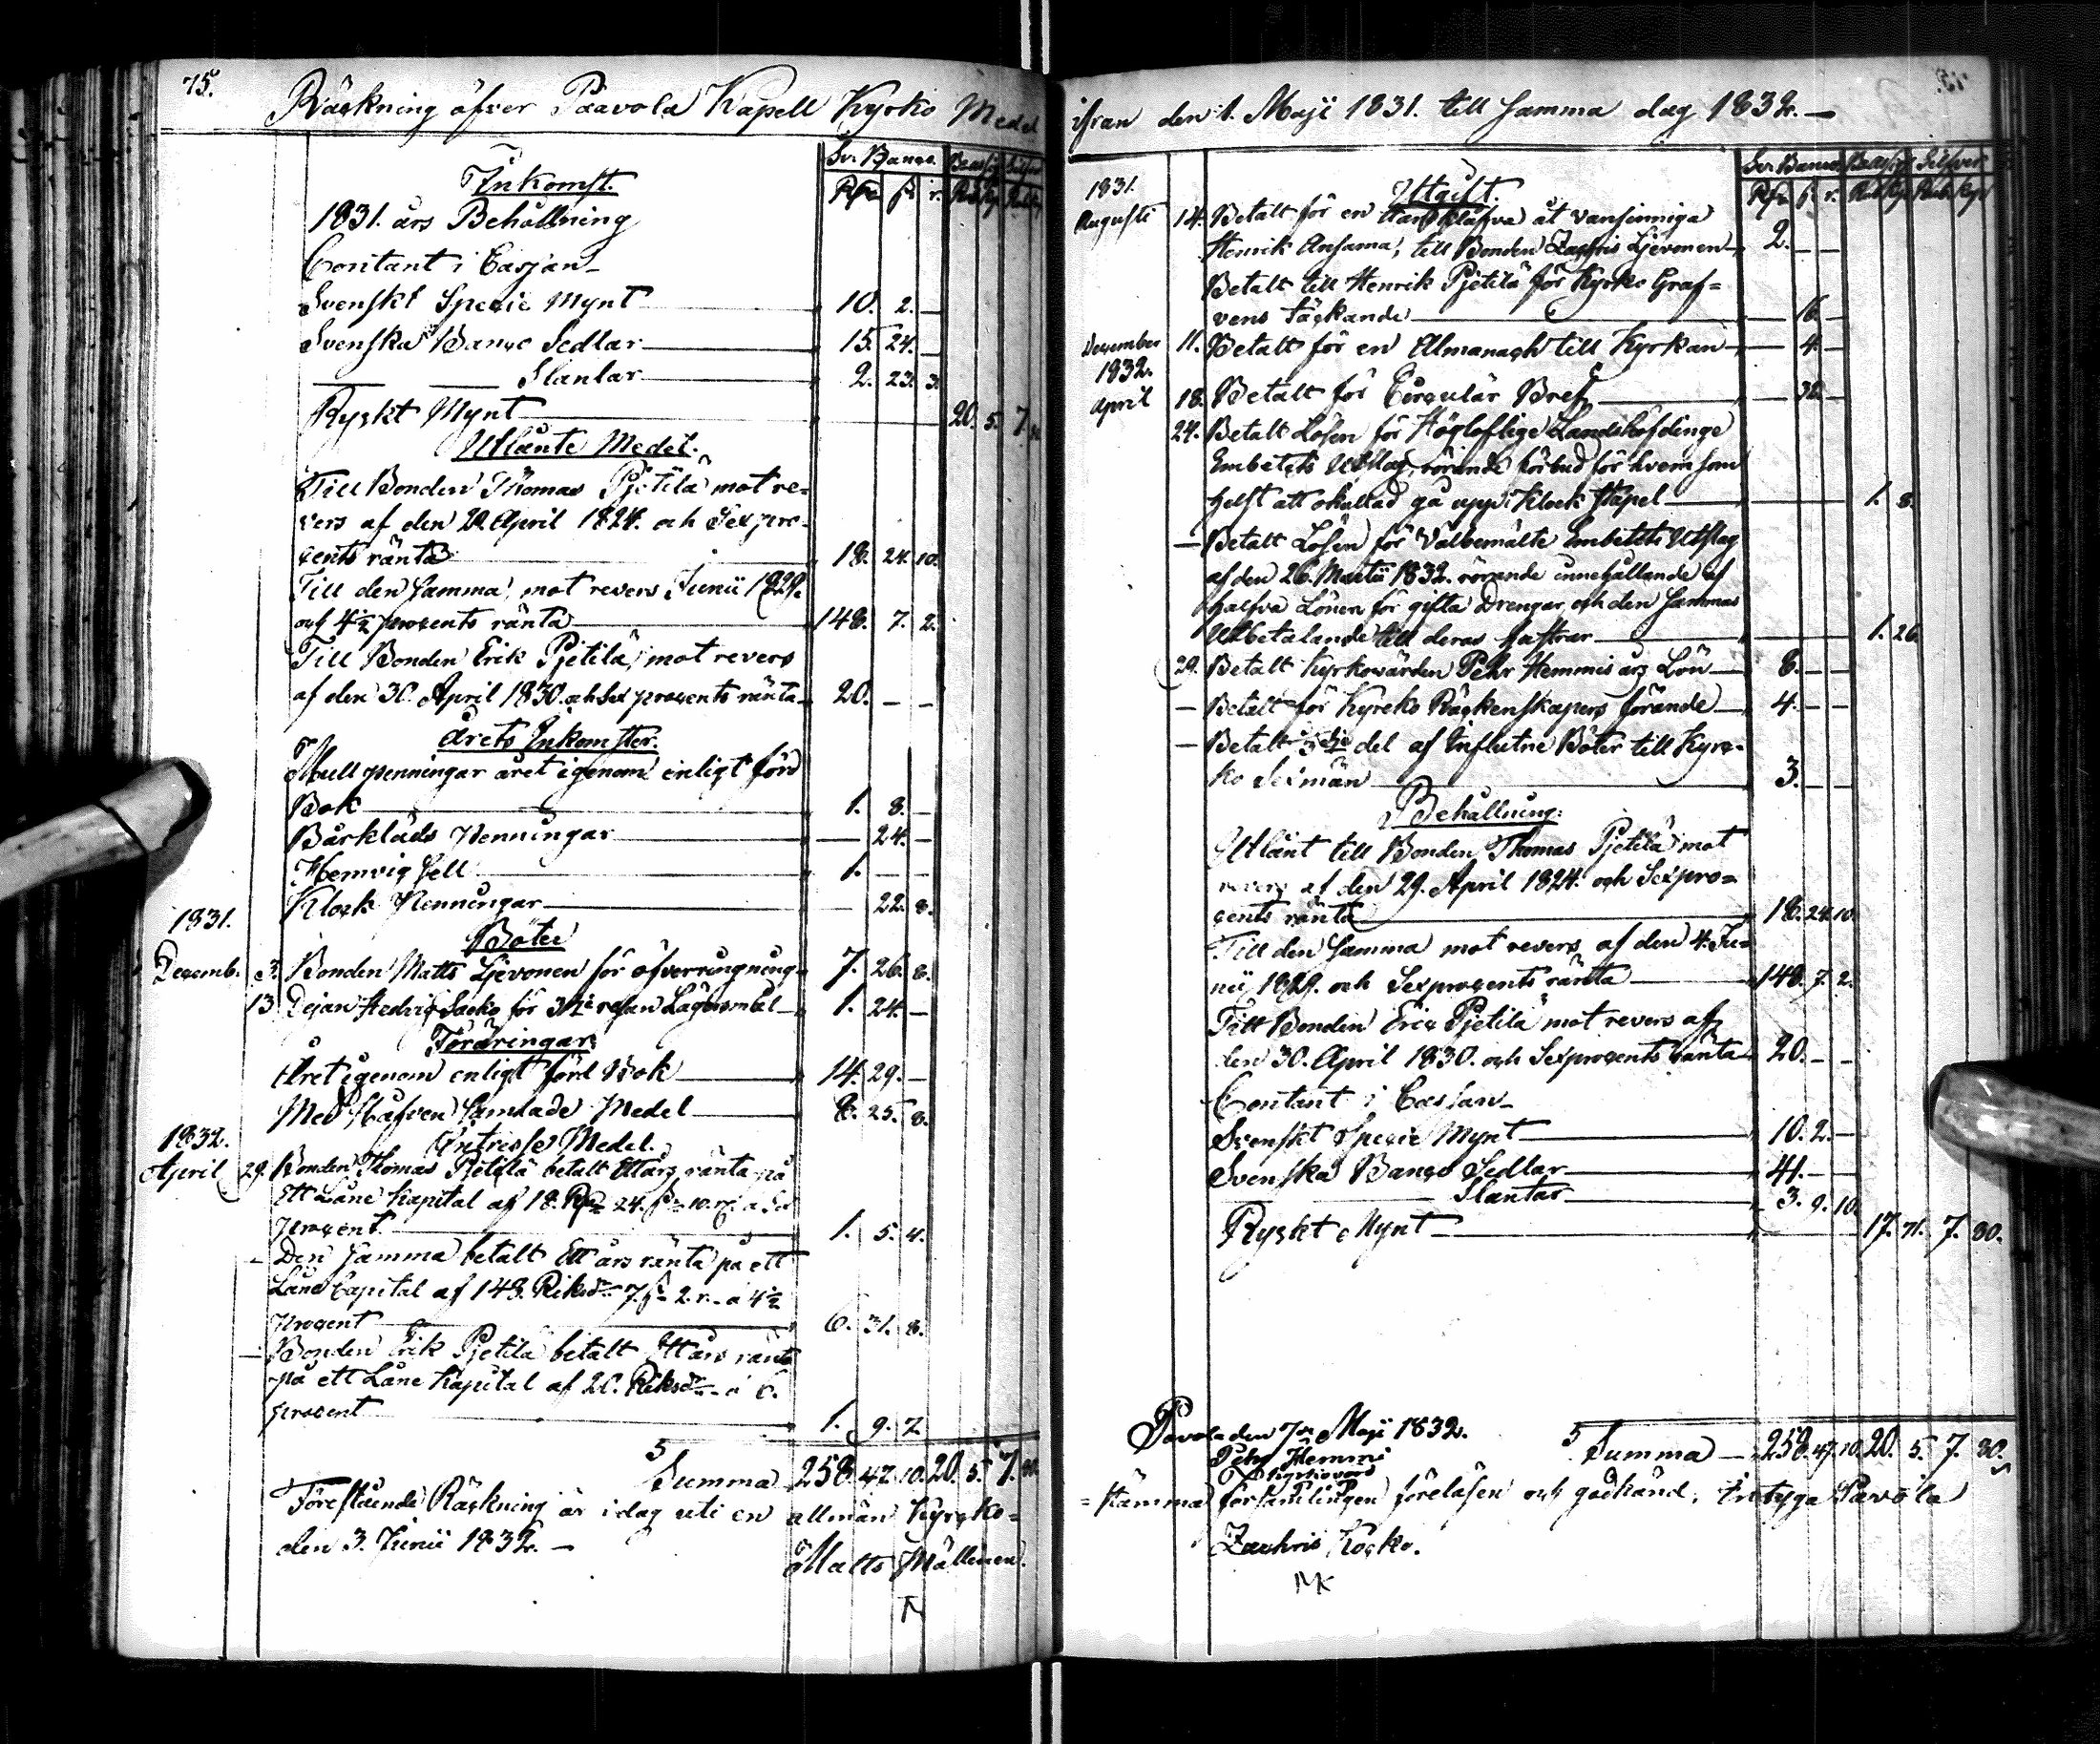 75.
Räckning öfver Paavola Kapell Kyrko Medel
Sv: Banco. Bco Ass: Silfver
Inkomst. Rdr ß r. Rub. Kop
1831. års Behållning
Contant i Cassan
Svenskt Specie Mynt 10. 2. —
Svenska Banco Sedlar 15. 24. —
— — Slantar 2. 23. 3.
Ryskt Mynt 20. 5. 7.
Utlånte Medel.
Till Bonden Thomas Pjetilä mot re-
vers af den 29. April 1824. och Sex pro-
cents ränta 18. 24. 10.
Till den samma mot revers Junii 1829.
och 4½ procents ränta 148. 7. 2.
Till Bonden Erik Pjetilä, mot revers
af den 30. April 1830. och sex procents ränta 20. — —
Årets Inkomster.
Mull penningar året igenom enligt förd
Bok 1. 8. —
Bårkläds Penningar — 24. —
Hemvigsell 1. — —
Klock Penningar — 22. 8.
1831.
Böter
Decemb. 3. Bonden Matts Ljevonen för öfverringning 7. 26. 8.
13 Dejan Hedvig Sacko för 3dje resan Lägersmål 1. 24. —
Föräringar
Året igenom enligt förd Bok 14. 29. —
Med Håfven samlade Medel 8. 25. 8.
1832.
Intresse Medel.
April 29. Bonden Thomas Pjetilä betalt Ett års ränta på
Ett Låne Kapital af 18. Rdr 24. ß 10. r. a Sex
procent. 1. 5. 4.
— Den samma betalt Ett års ränta på ett
Låne Capital af 148. Riksdr 7. ß 2. r. a 4½
procent 6. 31. 8.
— Bonden Erik Pjetilä betalt Ett års ränta
på ett Låne Kapital af 20. Riksdr a 6.
procent 1. 9. 7.
Summa 258. 47. 10. 20. 5. 7.
Förestående Räckning är i dag uti en allmän Kyrcko-
den 3. Junii 1832. —
Matts Mällinen.
ifrån den 1. Maji 1831. till samma dag 1832. —
Sv: Banco Bco Ass: Silfver
1831. Utgift. Rdr ß r. Rub Kop Rub. Kop
Augusti 14. Betalt för en Handklåfva åt vansinniga
Henrik Ansama, till Bonden Zachris Ljevonen 2. — —
Betalt till Henrik Pjetilä för Kyrko Graf-
vens täckande — 16. —
December 11. Betalt för en Almanach till Kyrkan — 4. —
1832.
April 18. Betalt för Circulär Bref — 32. —
24. Betalt Lösen för Högloflige Landshöfdinge
Embetets Utslag, rörande förbud för hvem som
helst att okallad gå upp i Klock Stapel 1. 8.
— Betalt Lösen för Välbemälte Embetets Utslag
af den 26. Martii 1832. rörande innehållande af
halfva Lönen för gifta Drengar, och den sammas
Utbetalande till deras hustrur 1. 26.
29. Betalt Kyrkovärden Pehr Hemmis års Lön 8. — —
— Betalt för Kyrcko Räckenskapers förande 4. — —
— Betalt 3dje del af Influtne Böter till Kyrc-
ko Sexmän 3. — —
Behållning:
Utlånt till Bonden Thomas Pjetilä mot
revers af den 29. April 1824. och Sexpro-
cents ränta 18. 24. 10.
Till den samma mot revers af den 4. Ju-
nii 1829. och Sexprocents ränta 148. 7. 2.
Till Bonden Eric Pjetilä mot revers af
den 30. April 1830. och Sexprocents ränta 20. — —
Contant i Cassan
Svenskt Specie Mynt 10. 2. —
Svenska Banco Sedlar 41. — —
Slantar 3. 9. 10.
Ryskt Mynt 17. 71. 7. 80.
Pavola den 7de Maji 1832.
Summa 258. 47. 10. 20. 5. 7. 80.
Pehr Hemmi
Kyrkovärd
=stämma församlingen föreläsen och godkänd, intyga Pavola
Zachris Kocko.
MK